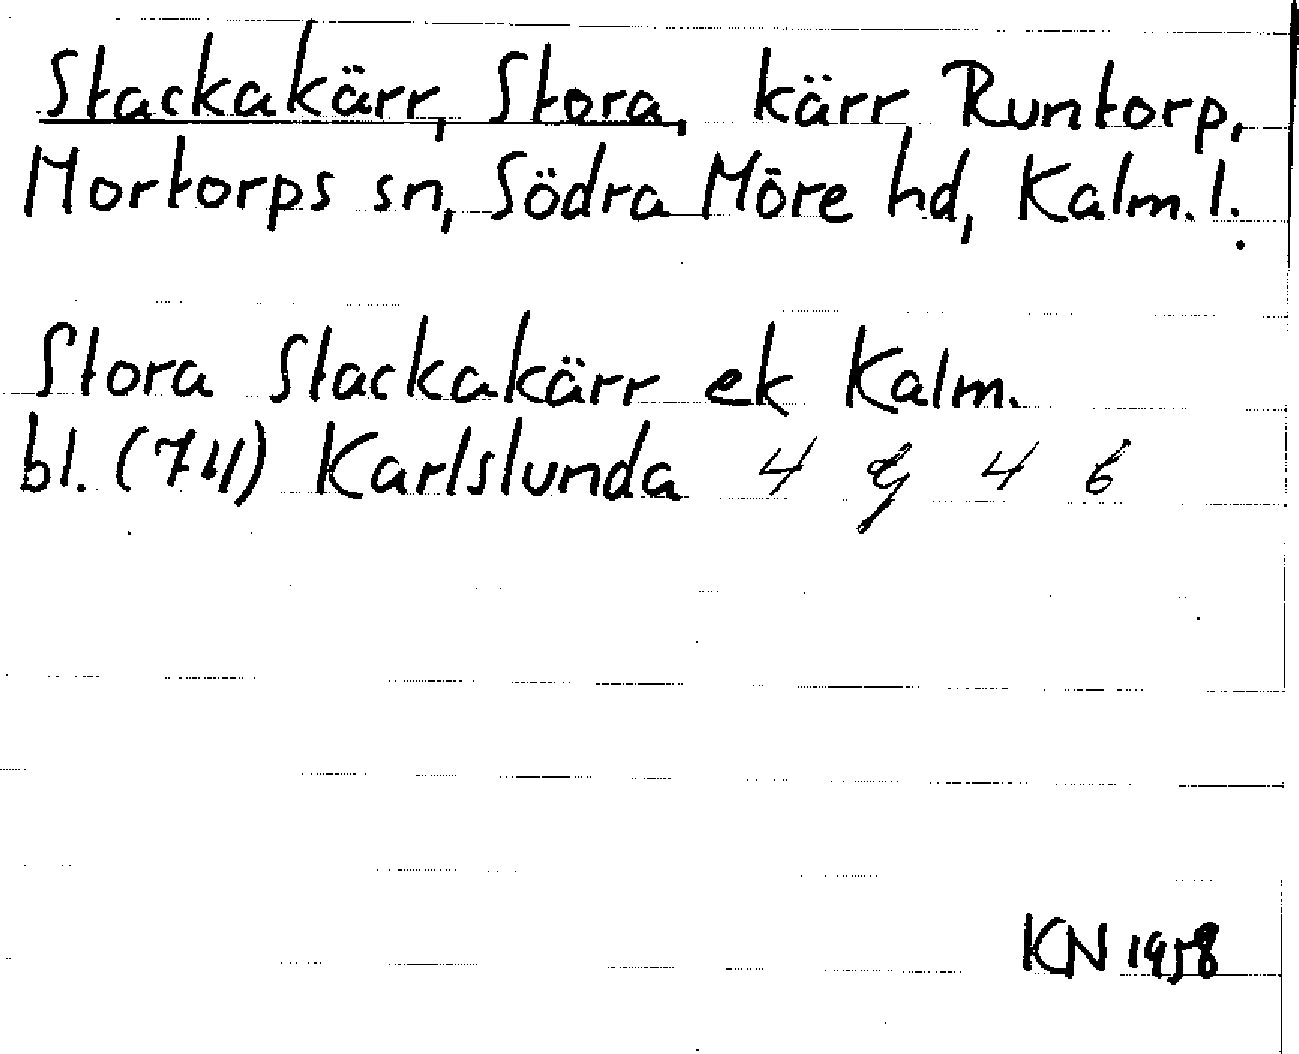 Stackakärr, Stora, kärr, Runtorp,
Mortorps sn, Södra Möre hd, Kalm. l.
Stora Stackakärr ek Kalm.
bl. (74) Karlslunda 4 g 4 6
KN 1958